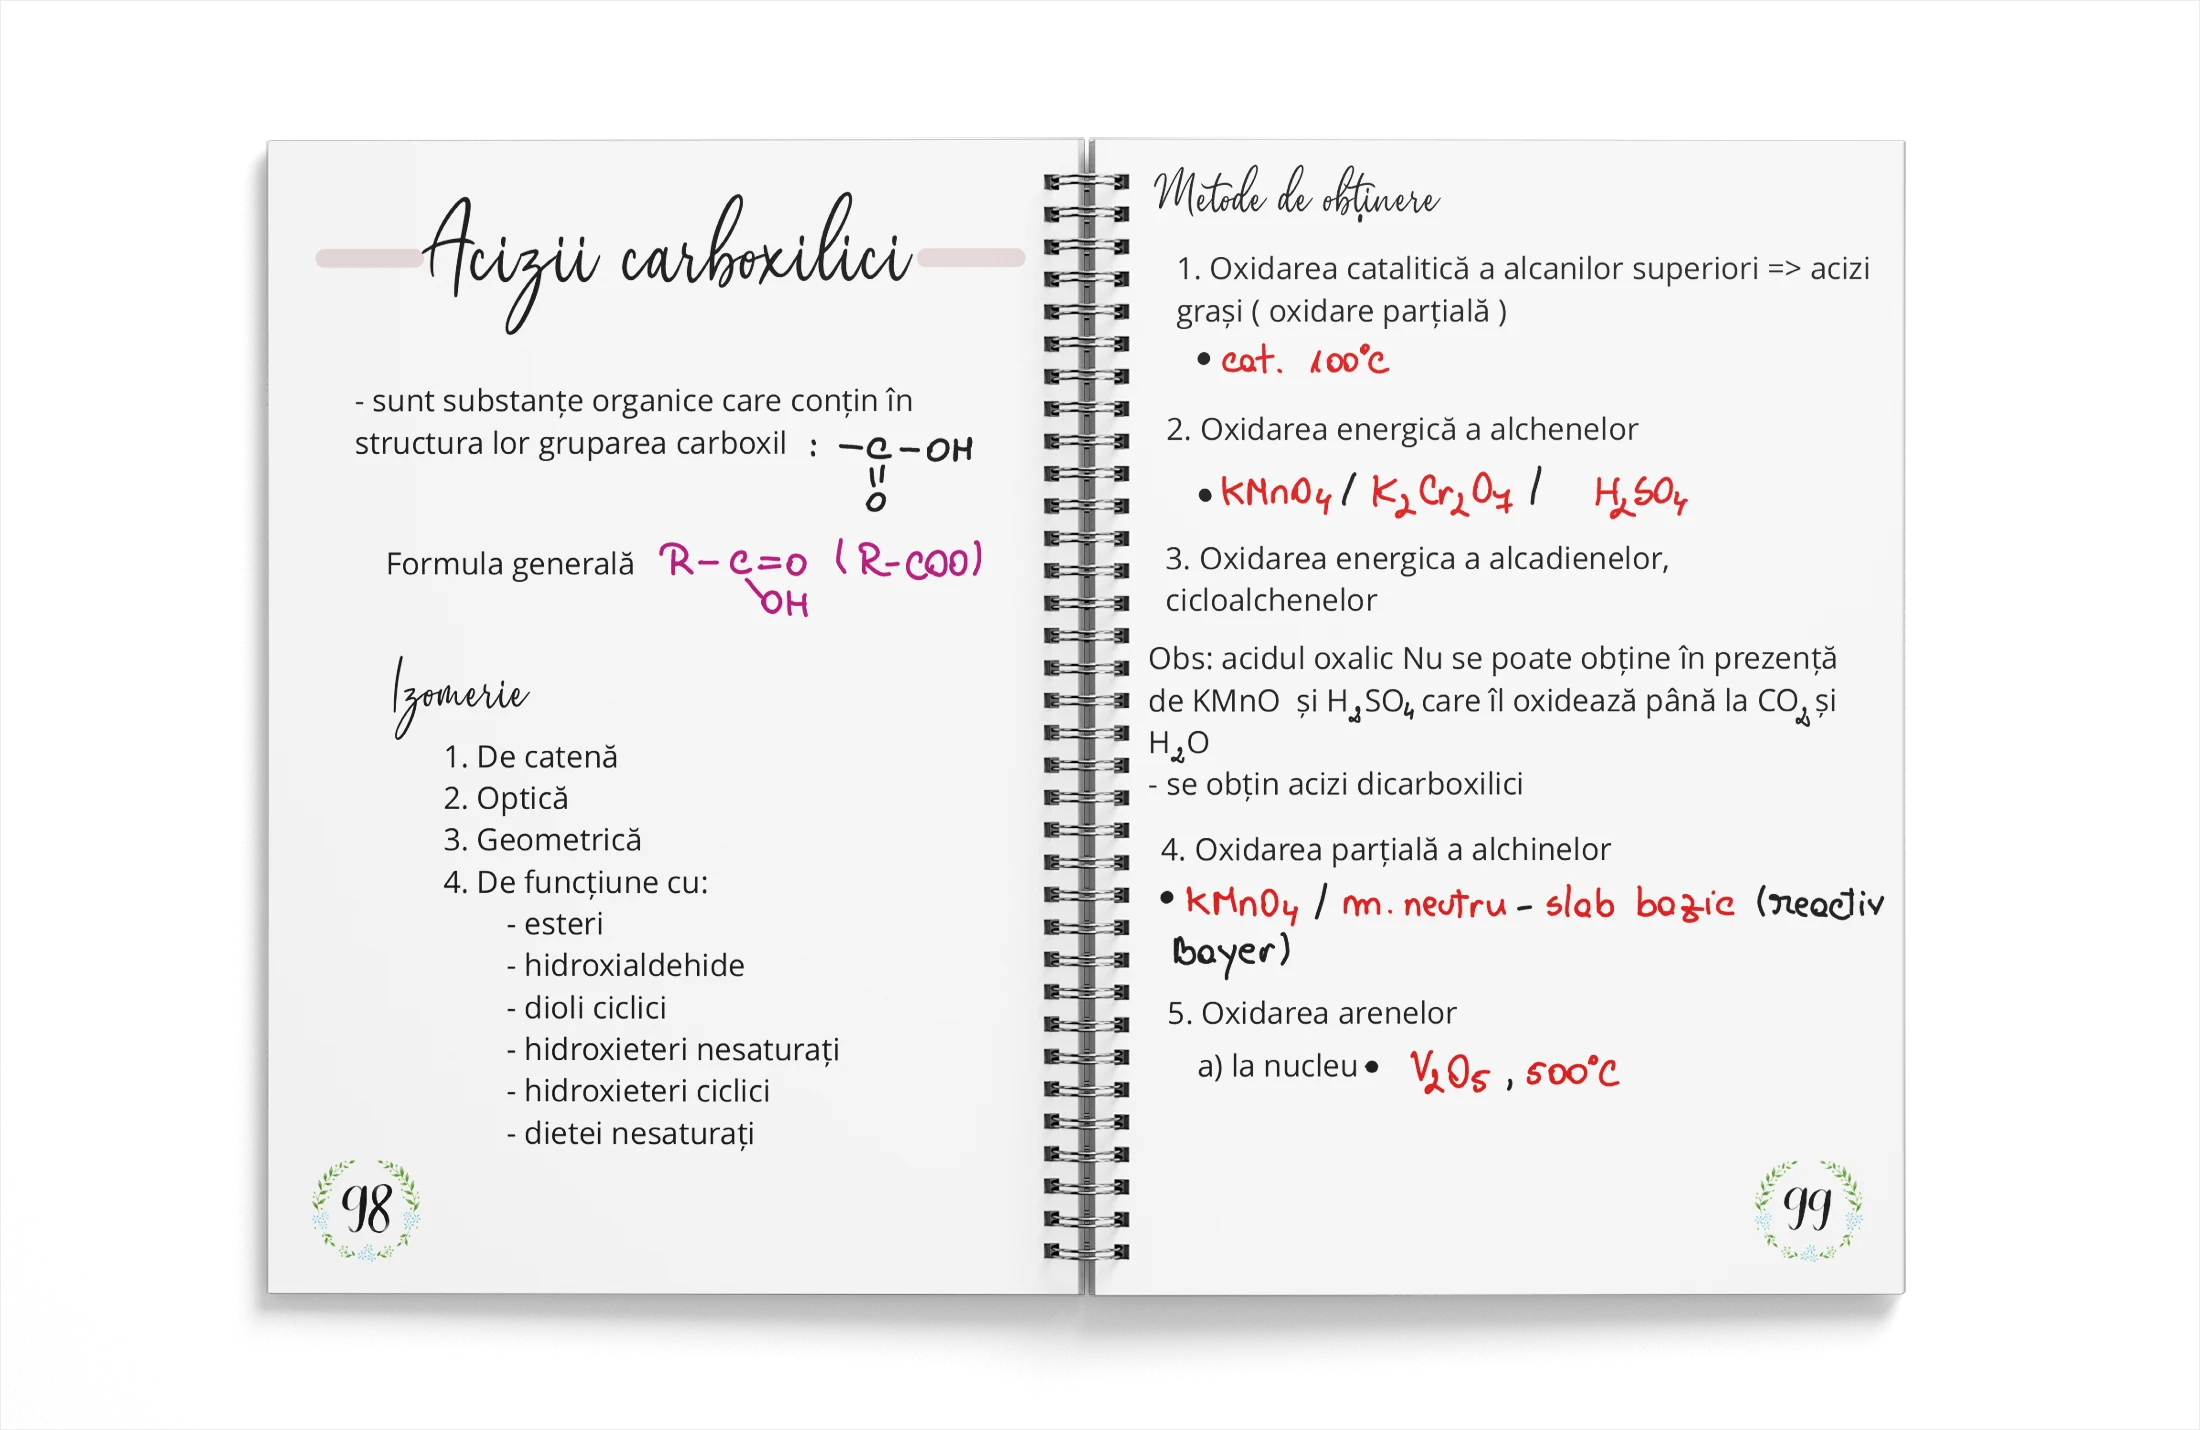 Acizii carboxilici
- sunt substanțe organice care conțin în
structura lor gruparea carboxil : -C-OH
||
O
Formula generală R-C=O (R-COO)
\OH
Izomerie
1. De catenă
2. Optică
3. Geometrică
4. De funcțiune cu:
- esteri
- hidroxialdehide
- dioli ciclici
- hidroxieteri nesaturați
- hidroxieteri ciclici
- dietei nesaturați
98
Metode de obținere
1. Oxidarea catalitică a alcanilor superiori => acizi
grași ( oxidare parțială )
• cat. 100°C
2. Oxidarea energică a alchenelor
• KMnO₄ / K₂Cr₂O₇ / H₂SO₄
3. Oxidarea energica a alcadienelor,
cicloalchenelor
Obs: acidul oxalic Nu se poate obține în prezență
de KMnO și H₂SO₄ care îl oxidează până la CO₂ și
H₂O
- se obțin acizi dicarboxilici
4. Oxidarea parțială a alchinelor
• KMnO₄ / m. neutru - slab bazic (reactiv
Bayer)
5. Oxidarea arenelor
a) la nucleu • V₂O₅ , 500°C
99